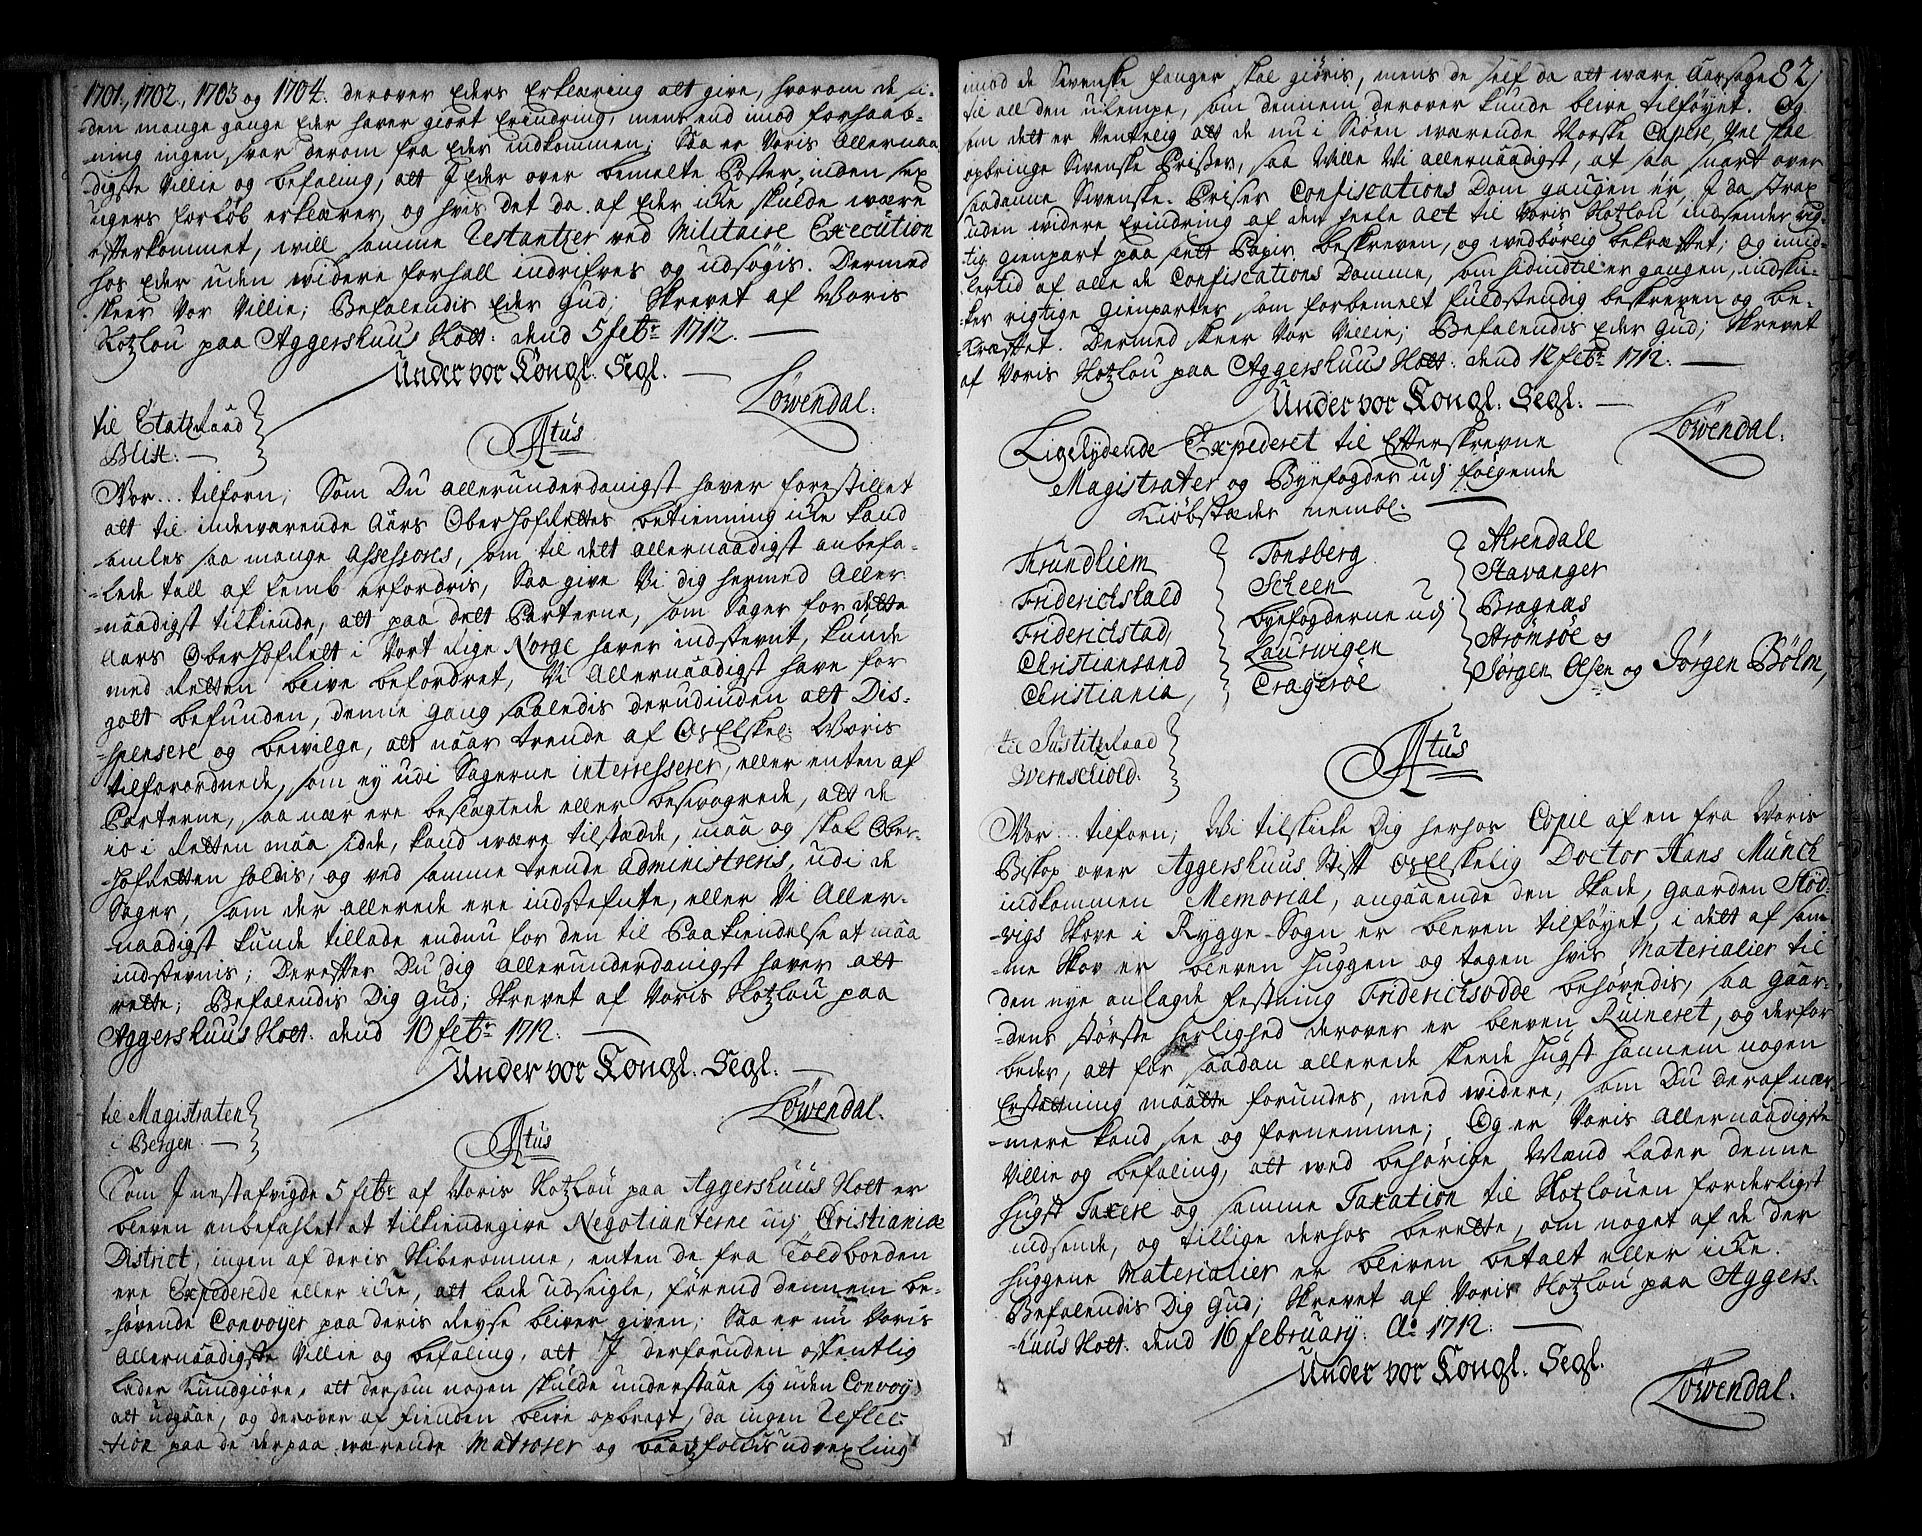 1701, 1702, 1703 og 1704. derover Eders Erklæring att give, hvorom de si-
-den mange gange Eder haver giort Erindring, mens end imod forhaab-
ning ingen svar derom fra Eder indkommen; Saa er Voris Allernaa
digste Villie og befaling, att I Eder over bemelte Poster, inden sex
ugers forløb erklærer, og hvis det da af Eder icke skulde være
efterkommet, will samme Restantzer ved Militaire Execution
hos Eder uden widere forhall indrifves og udsøgis. Dermed
skeer Vor Villie; Befalendis Eder Gud; Skrevet af Voris
Slotzlou paa Aggershuus Slott: dend 5 febr: 1712. —
Under vor Kongl. Segl. —
Löwendal.
til Etatzraad
Blixt. —
F4tus
Vor... tilforn; Som Du allerunderdanigst haver forestillet
att til indeværende Aars OberHofRettes betienning icke kand
samles saa mange assessores, som til dett allernaadigst anbefa-
-lede tall af femb erfordris, Saa give Vi dig hermed Aller
-naadigst tilkiende, att paa dett Parterne, som Sager for dette
Aars OberHofRett i Vort Rige Norge haver indstevnt, kunde
med Retten blive befordret, Vi Allernaadigst have for
gott befunden, denne gang saaledis derudinden att Dis-
-pensere og bewilge, att naar trende af Os Elskel: Voris
tilforordnede, som ey udi Sagerne interresserer, eller enten af
Parterne, saa nær ere beslægtede eller besvogrede, att de
jo i Retten maa sidde, kand være tilstædde, maa og skal Ober-
-hofretten holdis, og ved samme trende administreris, udi de
Sager, som der allerede ere indstefnte, eller Vi Aller-
-naadigst kunde tillade endnu for den til Paakiendelse at maa
indstevnis; Derefter Du dig allerunderdanigst haver att
rette; Befalendis Dig Gud; Skrevet af Voris Slotzlou paa
Aggershuus Slott: dend 10 febr: 1712. —
Under vor Kongl. Segl. —
Löwendal.
til Magistraten
i Bergen. —
Som I nestafvigde 5 febr: af Voris Slotzlou paa Aggershuus Slott er
bleven anbefahlet at tilkiendegive Negotianterne udj Christianiæ
District, ingen af deris Skiberomme, enten de fra Toldboeden
ere Expederede eller icke, att lade udseigle, førend dennem be-
-høvende Convoyer paa deris Reyse bliver given; Saa er nu Voris
Allernaadigste Villie og befaling, att I derforuden offentlig
lader kundgiøre, att dersom nogen skulde understaae sig uden Convoy
att udgaae, og derover af fienden blive opbragt, da ingen Reflec-
-tion paa de derpaa værende Matroser og baadzfolkis udvexling
82
imod de Svenske fanger skal giøris, mens de self da att være Aarsage
til all den ulempe, som dennem derover kunde blive tilføyet. Og
som dett er Ventelig att de nu i Siøen værende Norske Capere, Vel skal
opbringe Svenske Priser, saa Wille Vi allernaadigst, at saa snart over
saadanne Svenske Priser Confiscations Dom gangen er, I da strax
uden widere Erindring af den heele Act til Voris Slotzlou indsender rig-
tig gienpart paa slett Papir beskreven, og wedbørlig bekræftet; Og imid-
lertid af alle de Confiscations Domme, som hidindtil er gangen, indskic-
-ker rigtige gienparter, som forbemelt fuldstendig beskreven og be-
kræftet. Dermed skeer Vor Villie; Befalendis Eder Gud; Skrevet
af Voris Slotzlou paa Aggershuus Slott: dend 12 febr: 1712. —
Under vor Kongl. Segl. —
Löwendal.
Ligelydende Expederet til Efterskrevne
Magistrater og Byefogder udj følgende
Kiøbstæder nembl: —
Trundhiem
Friderichshald
Friderichstad,
Christiansand
Christiania,
Tonsberg
Scheen
byefogderne udj
Laurwigen
Cragerøe
Arendall
Stavanger
Bragnæs
Strömsöe og
Jørgen Olsen og Jørgen Bölm,
til Justitzraad
Wernschiold.
Vor... tilforn; Vi tilskicke Dig herhos Copie af en fra Voris
Biskop over Aggershuus Stift Os Elskelig Doctor Hans Munch
indkommen Memorial, angaaende den Skade, gaarden
-vigs Skove i Rygge-Sogn er bleven tilføyet, i dett af sam-
-me Skov er bleven huggen og tagen hvis Materialier til
den nye anlagde festning Friderichsodde behøvedis, saa gaar-
-dens største herlighed derover er bleven Ruineret, og derfor
beder, att for saadan allerede skeede hugst hannem nogen
Erstatning maatte forundes, med widere, som Du deraf nær-
-mere kand see og fornemme; Og er Voris Allernaadigste
Villie og befaling, att wed behørige Mænd lader denne
hugst Taxere og samme Taxation til Slotzlouen forderligst
indsende, og tillige derhos berette, om noget af de der
huggene Materialier er bleven betalt eller icke.
Befalendis Dig Gud; Skrevet af Voris Slotzlou paa Aggers-
-huus Slott: dend 16 february: Ao 1712. —
Under vor Kongl. Segl.
Löwendal.